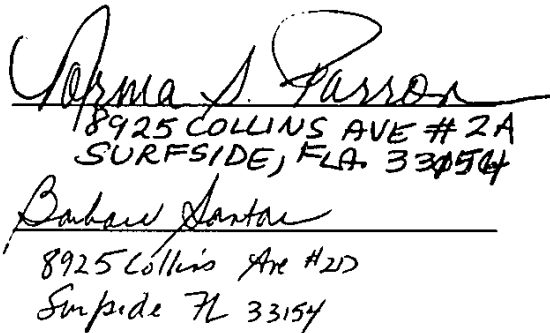 Norma S. Parron
8925 COLLINS AVE # 2A
SURFSIDE, FLA. 33154
Barbara Santos
8925 Collins Ave #2D
Surfside FL 33154